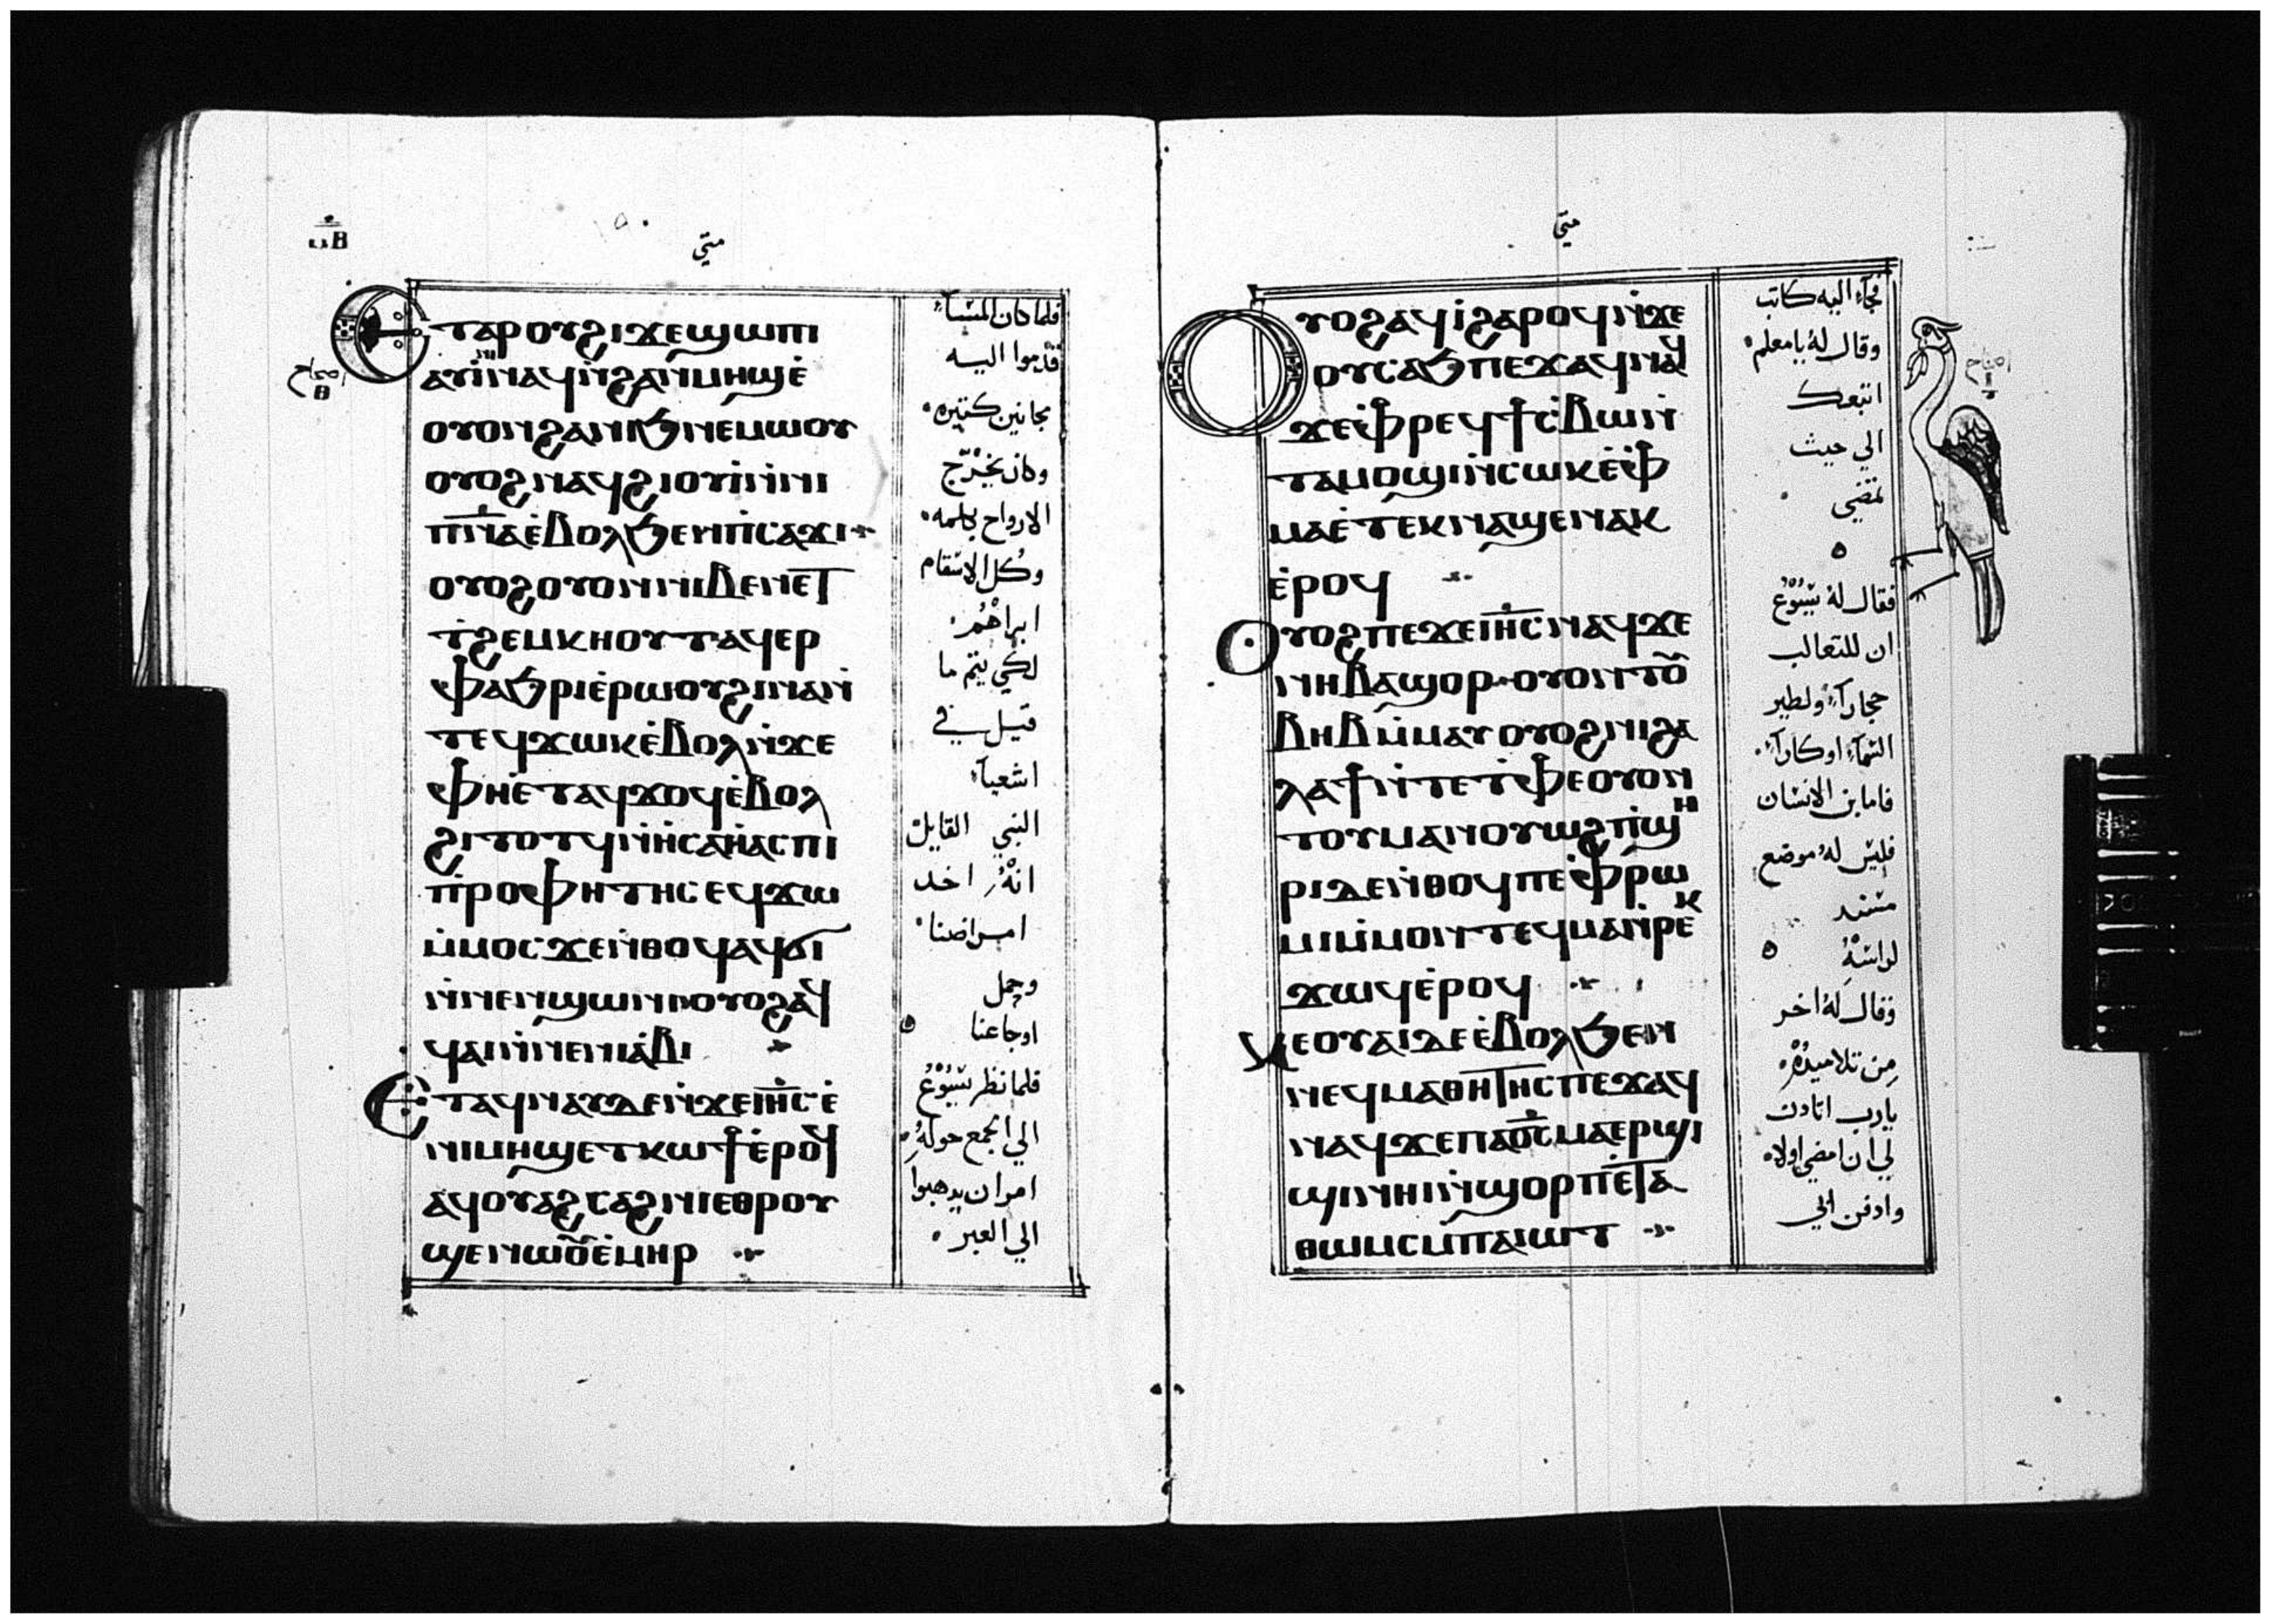 متي
ⲉⲧⲁⲣⲟⲩϩⲓϫⲉϣⲱⲡⲓ
ⲟⲩⲟⲛϩⲁⲛⲓϧⲛⲉⲙⲱⲟⲩ
ⲟⲩⲟϩⲛⲁϥϩⲓⲟⲩⲓ̇ⲛ̇ⲛⲓ
ⲡⲛ̅ⲁ̅ⲉ̇ⲃⲟⲗϧⲉⲛⲡ̇ⲥⲁϫⲓ
ⲟⲩⲟϩⲟⲩⲟⲛⲛⲓⲃⲉⲛⲉⲧ
ⲧ̇ϩⲉⲙⲕⲏⲟⲩⲧⲁϥⲉⲣ
ⲫⲁϧⲣⲓⲉ̇ⲣⲱⲟⲩϩⲓⲛⲁⲛ̇
ⲧⲉϥϫⲱⲕⲉ̇ⲃⲟⲗⲛ̇ϫⲉ
ⲫⲏⲉ̇ⲧⲁϥϫⲟϥⲉ̇ⲃⲟⲗ
ϩⲓⲧⲟⲧϥⲛ̇ⲏ̇ⲥⲁⲏ̇ⲁⲥⲡⲓ
ⲡ̇ⲣⲟⲫⲏⲧⲏⲥⲉϥϫⲱ
ⲙ̇ⲙⲟⲥϫⲉⲛ̇ⲑⲟϥⲁϥϭⲓ
ⲛ̇ⲛⲉⲛϣⲱⲛⲓⲟⲩⲟϩⲁϥ
ϥⲁⲓⲛ̇ⲛⲉⲛⲓⲁ̇ⲃⲓ
ⲉⲧⲁϥⲛⲁⲩⲇⲉⲛ̇ϫⲉⲓⲏ̅ⲥ̅ⲉ̇
ⲛⲓⲙⲏϣⲉⲧⲕⲱϯⲉ̇ⲣⲟϥ
ⲁϥⲟⲩⲁϩⲥⲁϩⲛⲓⲉⲑⲣⲟⲩ
ϣⲉⲛⲱⲟⲩⲉ̇ⲙⲏⲣ
فلما كان المسآء
قدموا اليه
مجانين كتيره
وكان يخرج
الارواح بكلمه
وكل الاسقام
ابراهم
لكي يتم ما
قيل في
اشعيآ
النبي القايل
انه اخد
امراضنا
وحمل
اوجاعنا
فلما نظر يسوع
الي الجمع حوله
امر ان يدهبوا
الي العبر
متي
ⲟⲩⲟϩⲁϥⲓ̇ϩⲁⲣⲟϥⲛ̇ϫⲉ
ⲟⲩⲥⲁϧⲡⲉϫⲁϥⲛⲁϥ
ϫⲉⲫ̇ⲣⲉϥϯⲥ̇ⲃⲱⲛ̇
ⲧⲁⲙⲟϣⲓⲛ̇ⲥⲱⲕⲉ̇ⲫ
ⲙⲁⲉ̇ⲧⲉⲕⲛⲁϣⲉⲛⲁⲕ
ⲉ̇ⲣⲟϥ
ⲟⲩⲟϩⲡⲉϫⲉⲓⲏ̅ⲥ̅ⲛⲁϥϫⲉ
ⲛⲏⲃⲁϣⲟⲣⲟⲩⲟⲛⲧⲟⲩ
ⲃⲏⲃⲙ̇ⲙⲁⲩⲟⲩⲟϩⲛⲓϩⲁ
ⲗⲁϯⲛ̇ⲧⲉⲧ̇ⲫⲉⲟⲩⲟⲛ
ⲧⲟⲩⲙⲁⲛⲟⲩⲱϩⲡ̇ϣⲏ
ⲣⲓⲇⲉⲛ̇ⲑⲟϥⲡⲉⲫ̇ⲣⲱ
ⲙⲓⲙ̇ⲙⲟⲛⲧⲉϥⲙⲁⲛ̇ⲣⲉⲕ
ϫⲱϥⲉ̇ⲣⲟϥ
ⲕⲉⲟⲩⲁⲓⲇⲉⲉ̇ⲃⲟⲗϧⲉⲛ
ⲛⲉϥⲙⲁⲑⲏⲧⲏⲥⲡⲉϫⲁϥ
ⲛⲁϥϫⲉⲡⲁⲟ̅ⲥ̅ⲙⲁⲉⲣϣⲓ
ϣⲓⲛⲏⲓⲛ̇ϣⲟⲣⲡⲉ̇ⲧⲁ
ⲑⲱⲙⲥⲙ̇ⲡⲁⲓⲱⲧ
فجآء اليه كاتب
وقال له يا معلم
اتبعك
الي حيث
تمضي
فقال له يسوع
ان للتعالب
حجارآ ولطير
السمآء اوكارآ
فاما بن الانسان
فليس له موضع
يسند
لراسه
وقال له اخر
من تلاميده
يارب ادن
لي ان امضي اولا
وادفن ابي